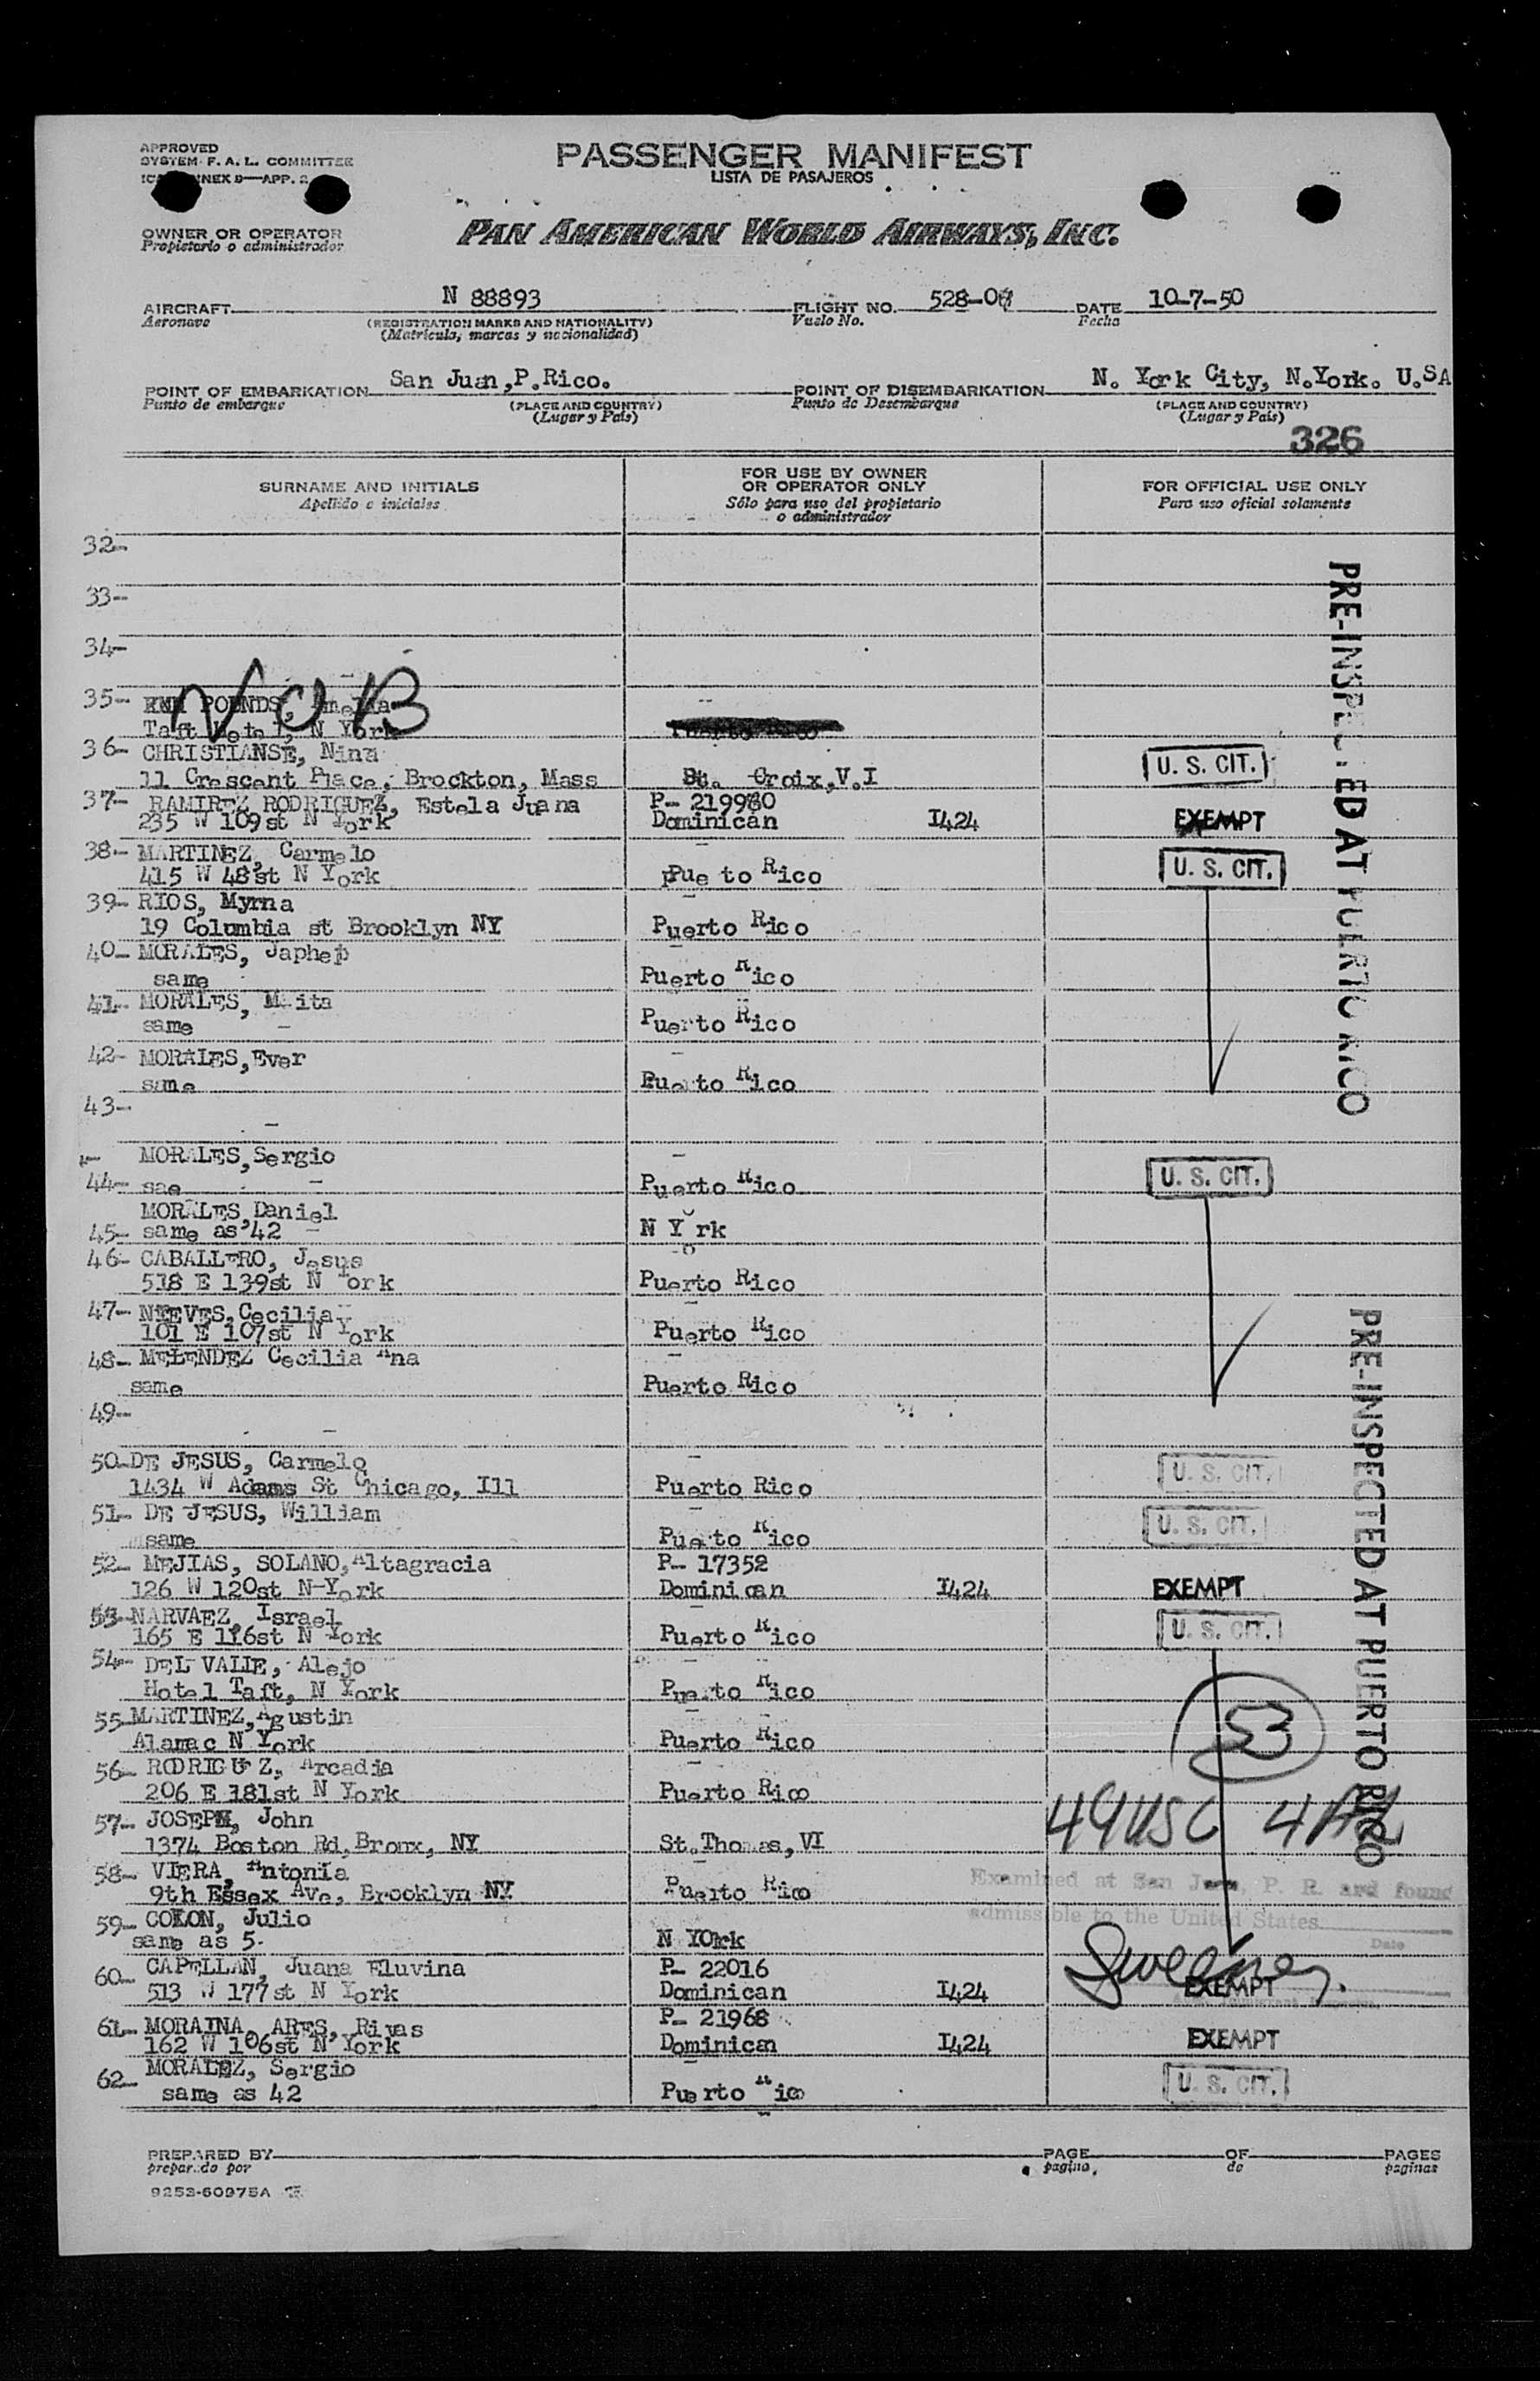 APPROVED
SYSTEM F. A. L. COMMITTEE
ANNEX 9—APP. 2
PASSENGER MANIFEST
LISTA DE PASAJEROS
OWNER OR OPERATOR
Propietario o administrador
PAN AMERICAN WORLD AIRWAYS, INC.
AIRCRAFT N 88893 FLIGHT NO. 528-0 DATE 10-7-50
Aeronave (REGISTRATION MARKS AND NATIONALITY) Vuelo No. Fecha
(Matrícula, marcas y nacionalidad)
POINT OF EMBARKATION San Juan,P.Rico. POINT OF DISEMBARKATION N. York City, N.York. U.SA
Punto de embarque (PLACE AND COUNTRY) Punto de Desembarque (PLACE AND COUNTRY)
(Lugar y País) (Lugar y País)
326
SURNAME AND INITIALS FOR USE BY OWNER OR OPERATOR ONLY FOR OFFICIAL USE ONLY
Apellido e iniciales Sólo para uso del propietario o administrador Para uso oficial solamente
32-
33-
34-
35- POUNDS,
NOB
Taft Hotel, N York
36- CHRISTIANSE, Nina
11 Crescent Place, Brockton, Mass St. Croix,V.I U. S. CIT.
37- RAMIREZ RODRIGUEZ, Estela Juana P- 219980
235 W 109st N York Dominican I424 EXEMPT
38- MARTINEZ, Carmelo
415 W 48st N York Pue to Rico U. S. CIT.
39- RIOS, Myrna
19 Columbia st Brooklyn NY Puerto Rico
40- MORALES, Japhep
same Puerto Rico
41- MORALES,
same Puerto Rico
42- MORALES,Ever
same Puerto Rico
43-
MORALES,Sergio
44- sae Puerto Rico U. S. CIT.
MORALES,Daniel
45- same as 42 N York
46- CABALLERO, Jesus
518 E 139st N York Puerto Rico
47- NIEVES,Cecilia
101 E 107st N York Puerto Rico
48- MELENDEZ Cecilia Ana
same Puerto Rico
49-
50- DE JESUS, Carmelo
1434 W Adams St Chicago, Ill Puerto Rico U. S. CIT.
51- DE JESUS, William
same Puerto Rico U. S. CIT.
52- MEJIAS, SOLANO,Altagracia P- 17352
126 W 120st N-York Dominican I424 EXEMPT
53- NARVAEZ, Israel
165 E 116st N York Puerto Rico U. S. CIT.
54- DEL VALLE, Alejo
Hotel Taft, N York Puerto Rico
55- MARTINEZ,Agustin
Alamac N York Puerto Rico
53
56- RODRIGUEZ, Arcadia
206 E 181st N York Puerto Rico
57- JOSEPH, John
1374 Boston Rd,Bronx, NY St.Thomas,VI
49 USC 4 AL
58- VIERA, Antonia
9th Essex Ave, Brooklyn NY Puerto Rico
Examined at San Juan, P. R. and found
admissible to the United States
Date
59- COLON, Julio
same as 5 N YOrk
Sweeney
60- CAPELLAN, Juana Eluvina P- 22016
513 W 177st N York Dominican I424 EXEMPT
61- MORAINA, ARES, Rivas P- 21968
162 W 106st N York Dominican I424 EXEMPT
62- MORALEZ, Sergio
same as 42 Puerto Rico U. S. CIT.
PRE-INSPECTED AT PUERTO RICO
PRE-INSPECTED AT PUERTO RICO
PREPARED BY PAGE OF PAGES
preparado por pagina de paginas
9253-60975A